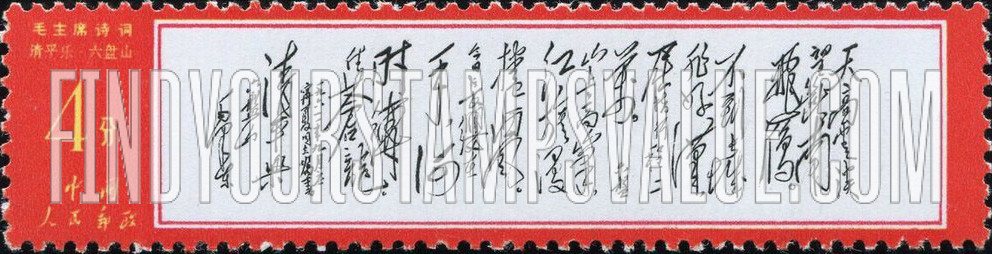 毛主席诗词
清平乐·六盘山
4分
中国
人民邮政
天高云淡
望断南
飞雁
不到长城
非好汉
屈指行程二
万
山上高峰
红旗漫
捲西风
今日长缨在
手何
时缚
住苍龙
清平乐
六盘山
毛泽东
FINDYOURSTAMPSVALUE.COM